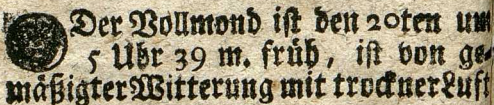 Der Vollmond ist den 20ten um
5 Uhr 39 m. früh, ist von ge-
mäßigter Witterung mit trockner Luft